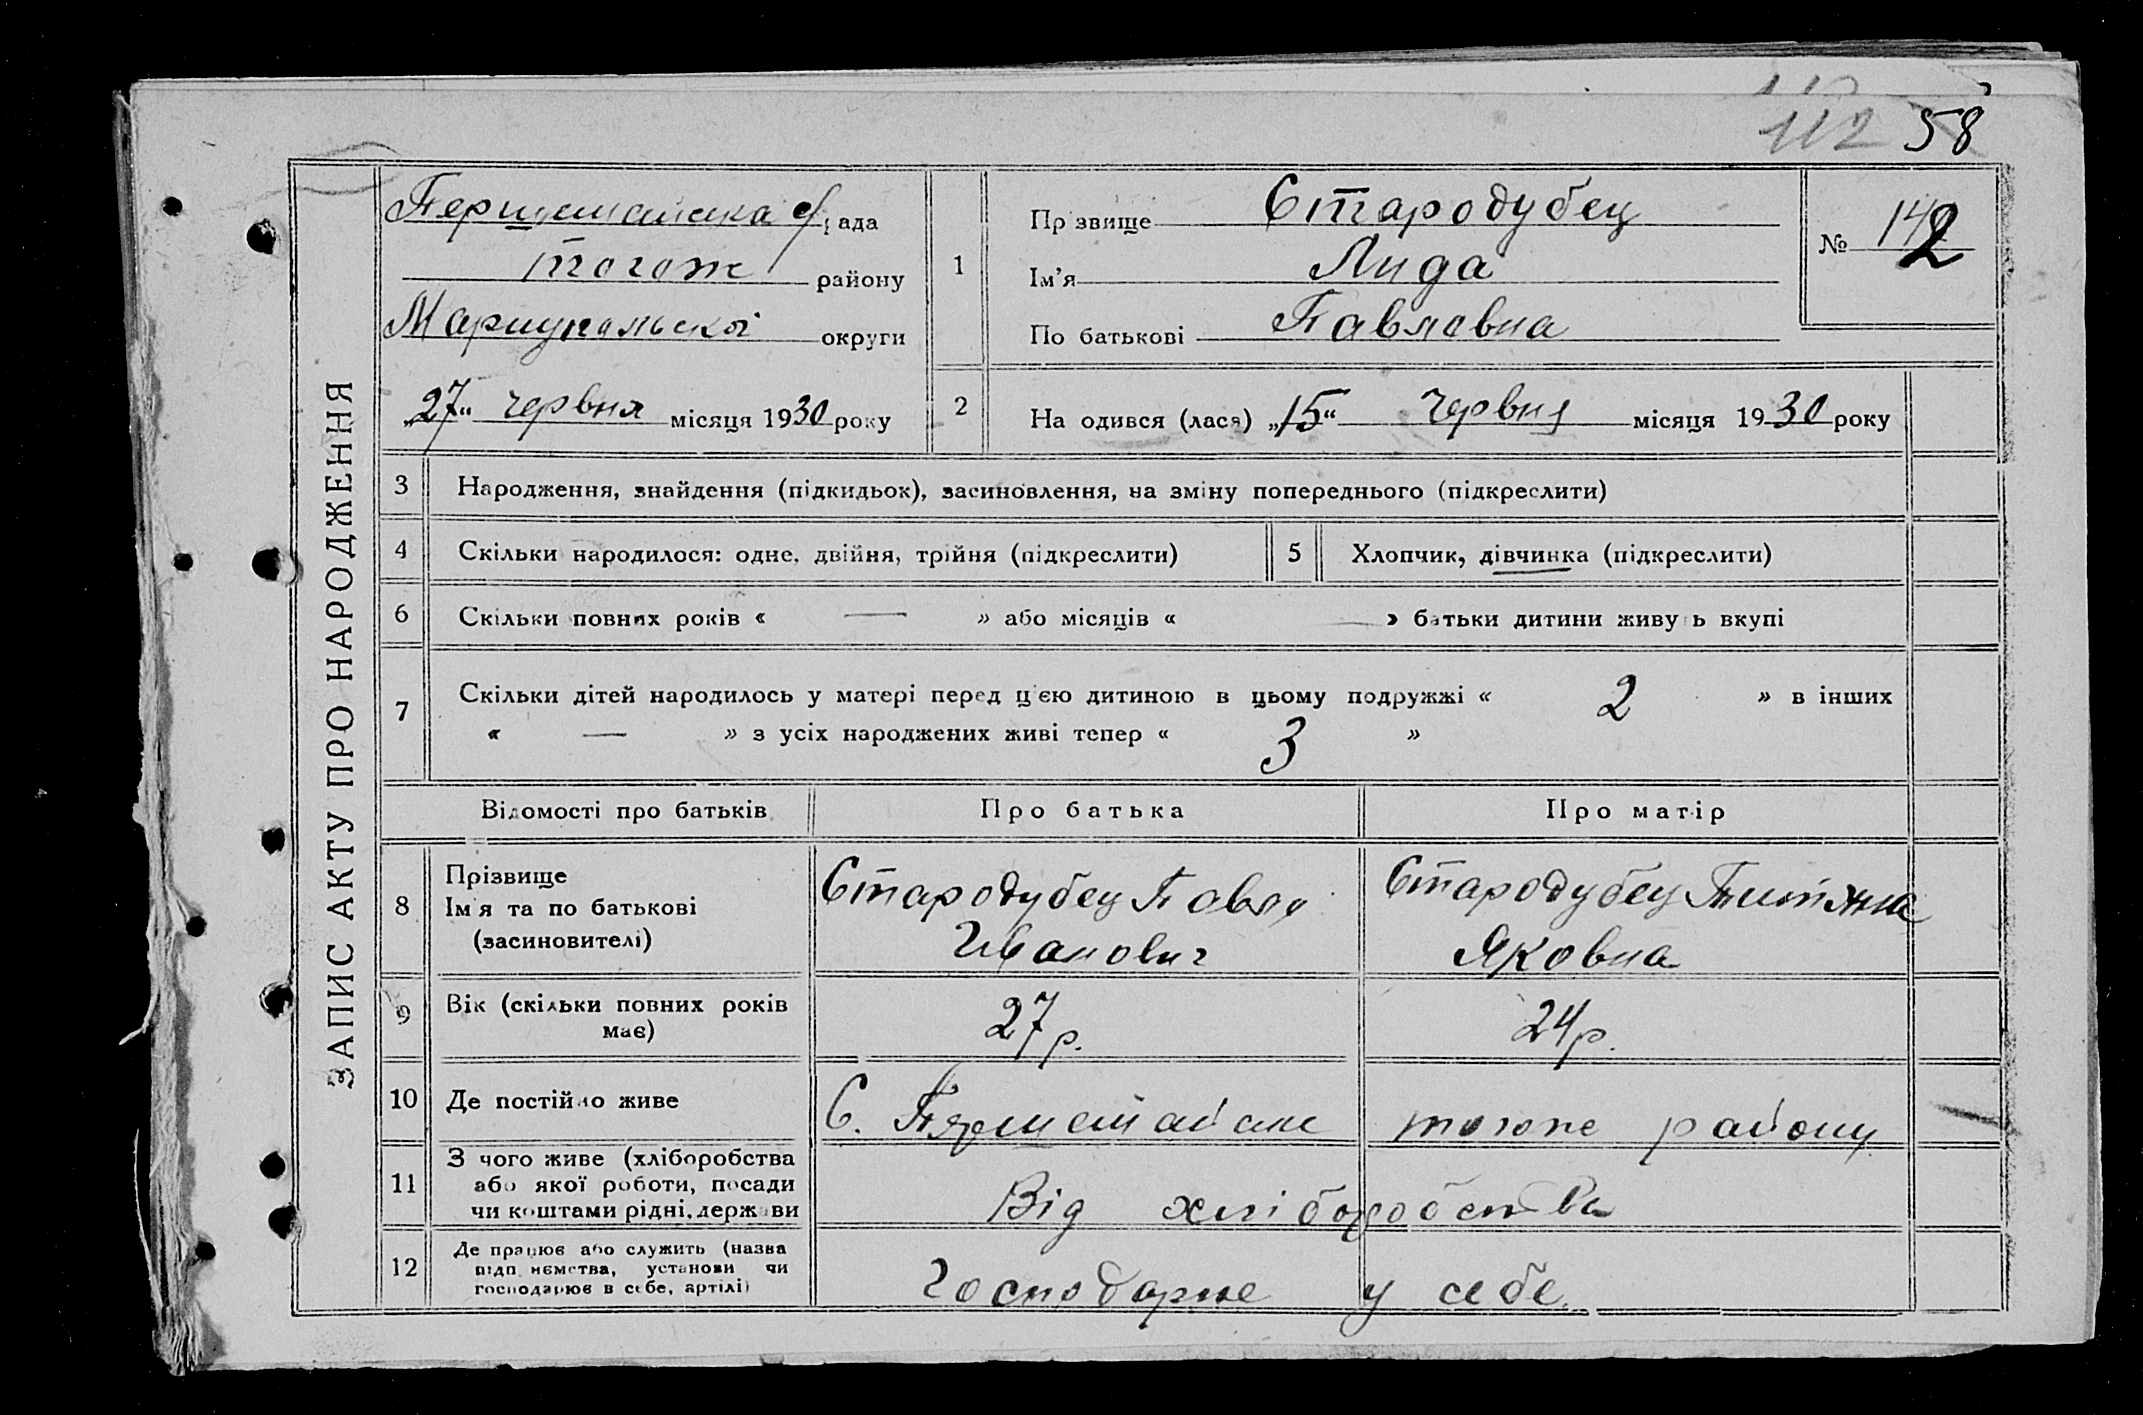 112 58
ЗАПИС АКТУ ПРО НАРОДЖЕННЯ
Першемайська с/рада
тогож району
Маріупольскої округи
„27“ червня місяця 1930 року
1
Прізвище Стародубец
Ім’я Лида
По батькові Павловна
№ 2
2
Народився (лася) „15“ Червня місяця 1930 року
3 Народження, знайдення (підкидьок), засиновлення, на зміну попереднього (підкреслити)
4 Скільки народилося: одне, двійня, трійня (підкреслити)
5 Хлопчик, дівчинка (підкреслити)
6 Скільки повних років « — » або місяців « — » батьки дитини живуть вкупі
7 Скільки дітей народилось у матері перед цією дитиною в цьому подружжі « 2 » в інших
« — » з усіх народжених живі тепер « 3 »
Відомості про батьків Про батька Про матір
8 Прізвище
Ім’я та по батькові
(засиновителі)
Стародубец Павло
Иванович
Стародубец Титяна
Яковна
9 Вік (скільки повних років
має)
27 р. 24 р.
10 Де постійно живе С. тогоже району
11 З чого живе (хліборобства
або якої роботи, посади
чи коштами рідні, держави
Від хліборобства
12 Де працює або служить (назва
підприємства, установи чи
господарює в себе, артілі)
Господарює у себе.